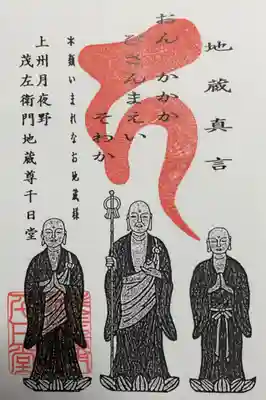 地蔵真言
おんかかか
びさんまえい
そわか
本願いまれなお地蔵様
上州月夜野
茂左衛門地蔵尊千日堂